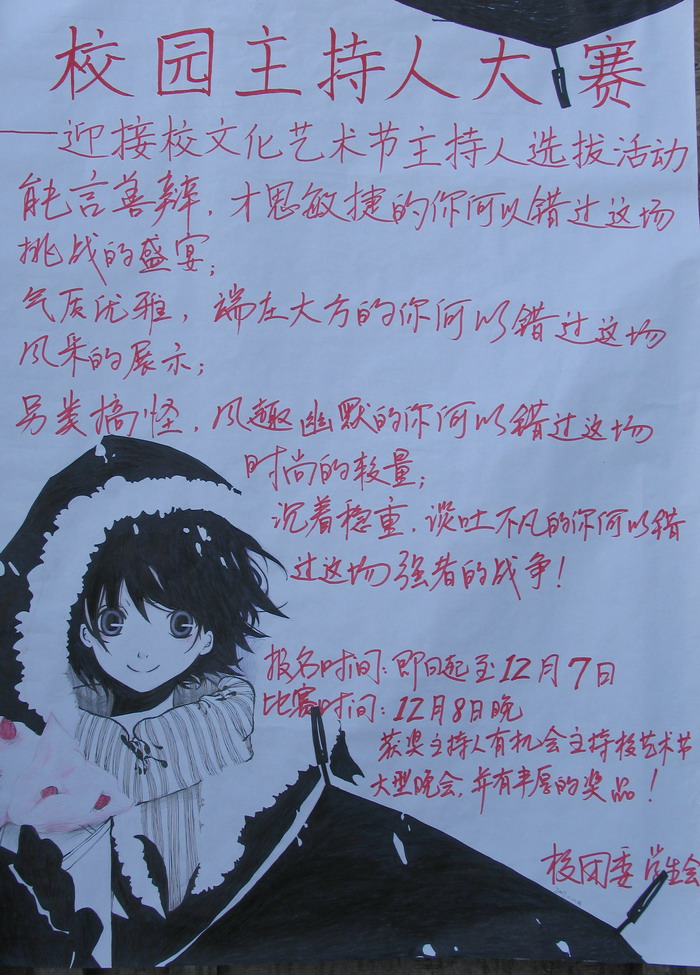 校园主持人大赛
——迎接校文化艺术节主持人选拔活动
能言善辩，才思敏捷的你何以错过这场
挑战的盛宴；
气质优雅，端庄大方的你何以错过这场
风采的展示；
另类搞怪，风趣幽默的你何以错过这场
时尚的较量；
沉着稳重，谈吐不凡的你何以错
过这场强者的战争！
报名时间：即日起至12月7日
比赛时间：12月8日晚
获奖主持人有机会主持校艺术节
大型晚会，并有丰厚的奖品！
校团委 学生会